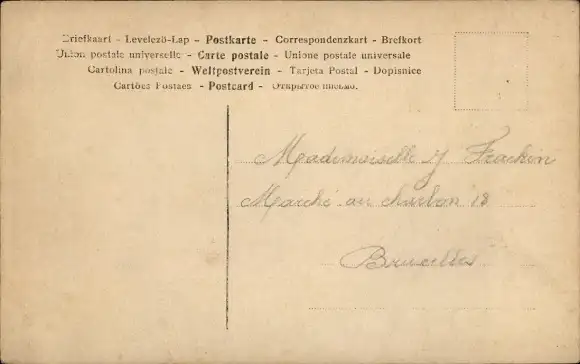 Briefkaart - Levelező-Lap - Postkarte - Correspondenzkart - Brefkort
Union postale universelle - Carte postale - Unione postale universale
Cartolina postale - Weltpostverein - Tarjeta Postal - Dopisnice
Cartões Postaes - Postcard - Открытое письмо.
Mademoiselle J Frachin
Marché au charbon 18
Bruxelles